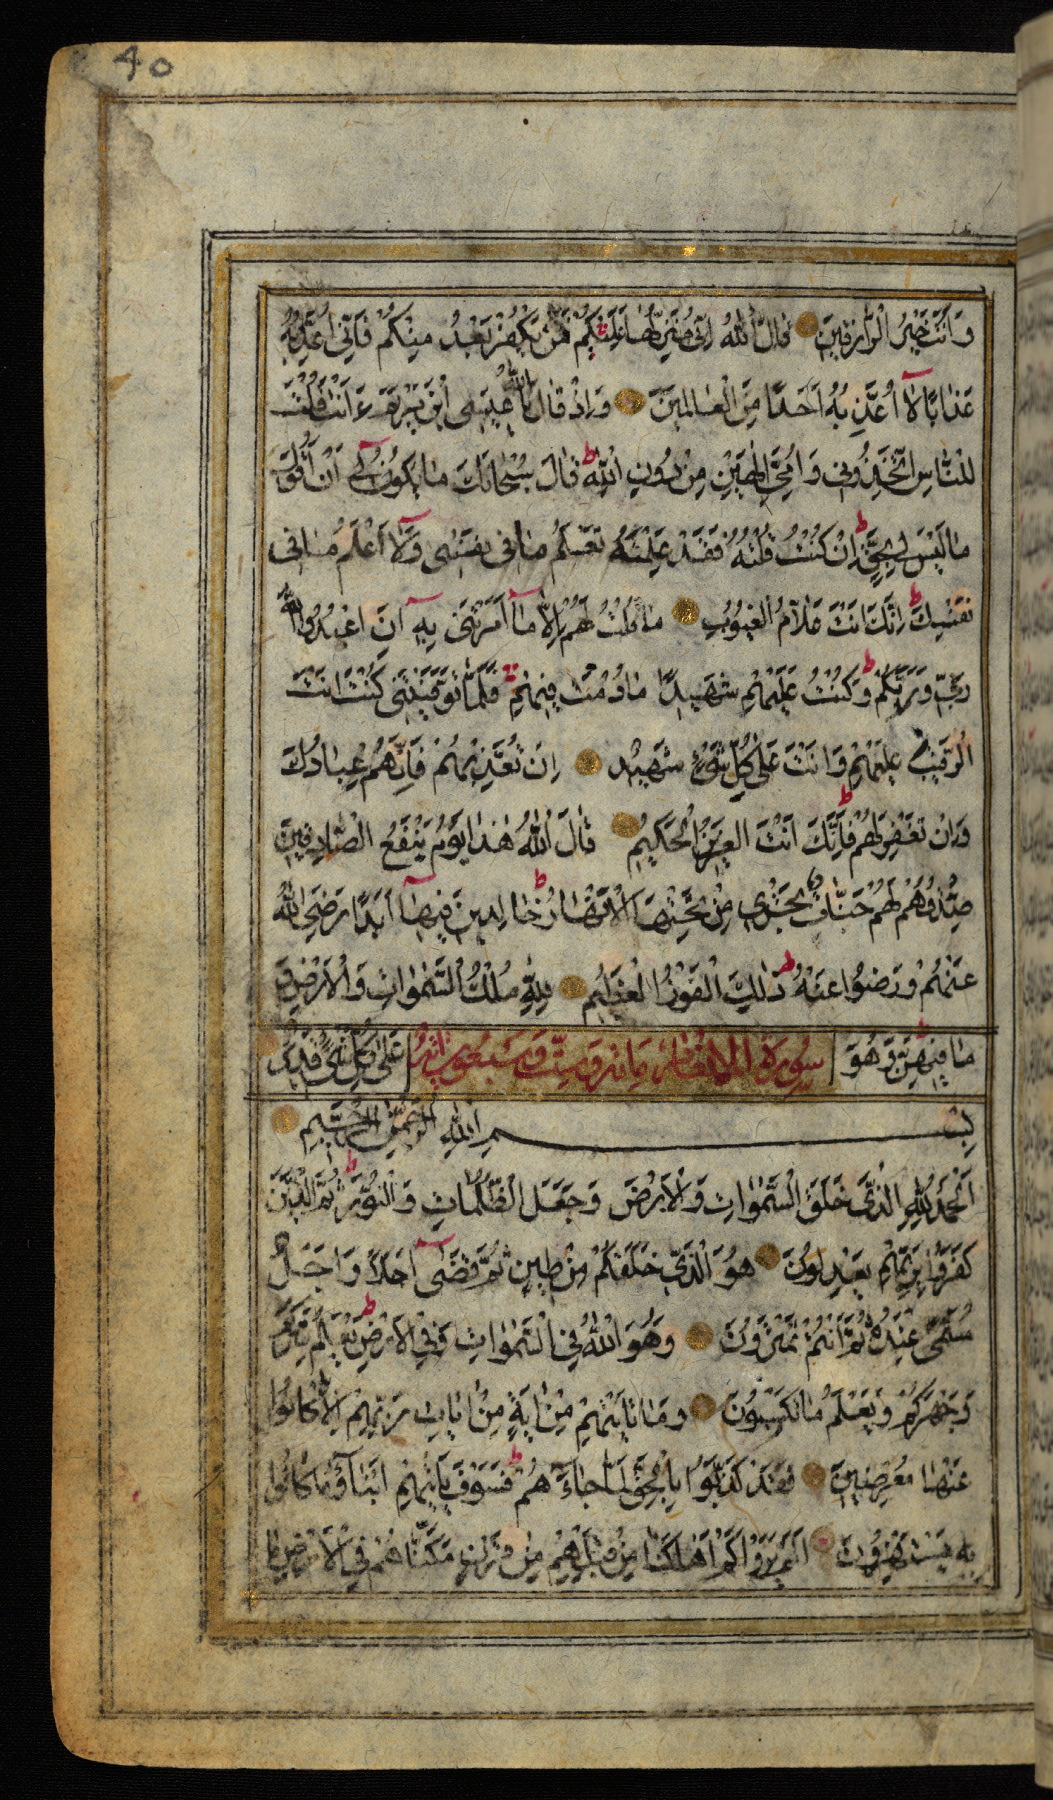 40
وَاَنْتَ خَيْرُ الرَّازِقِينَ قَالَ اللهُ اِنّى مُنَزِّلُهَا عَلَيْكُمْ فَمَنْ يَكْفُرْ بَعْدُ مِنْكُمْ فَاِنّى اُعَذِّبُهُ
عَذَابًا لَآ اُعَذِّبُهُ اَحَدًا مِنَ الْعَالَمِينَ وَاِذْ قَالَ اللهُ يَا عِيسَى ابْنَ مَرْيَمَ ءَاَنْتَ قُلْتَ
لِلنَّاسِ اتَّخِذُونِى وَاُمِّىَ اِلٰهَيْنِ مِنْ دُونِ اللهِ قَالَ سُبْحَانَكَ مَا يَكُونُ لِى اَنْ اَقُولَ
مَا لَيْسَ لِى بِحَقٍّ اِنْ كُنْتُ قُلْتُهُ فَقَدْ عَلِمْتَهُ تَعْلَمُ مَا فِى نَفْسِى وَلَآ اَعْلَمُ مَا فِى
نَفْسِكَ اِنَّكَ اَنْتَ عَلَّامُ الْغُيُوبِ مَا قُلْتُ لَهُمْ اِلَّا مَآ اَمَرْتَنِى بِهِ اَنِ اعْبُدُوا اللهَ
رَبِّى وَرَبَّكُمْ وَكُنْتُ عَلَيْهِمْ شَهِيدًا مَا دُمْتُ فِيهِمْ فَلَمَّا تَوَفَّيْتَنِى كُنْتَ اَنْتَ
الرَّقِيبَ عَلَيْهِمْ وَاَنْتَ عَلٰى كُلِّ شَىْءٍ شَهِيدٌ اِنْ تُعَذِّبْهُمْ فَاِنَّهُمْ عِبَادُكَ
وَاِنْ تَغْفِرْ لَهُمْ فَاِنَّكَ اَنْتَ الْعَزِيزُ الْحَكِيمُ قَالَ اللهُ هٰذَا يَوْمُ يَنْفَعُ الصَّادِقِينَ
صِدْقُهُمْ لَهُمْ جَنَّاتٌ تَجْرِى مِنْ تَحْتِهَا الْاَنْهَارُ خَالِدِينَ فِيهَآ اَبَدًا رَضِىَ اللهُ
عَنْهُمْ وَرَضُوا عَنْهُ ذٰلِكَ الْفَوْزُ الْعَظِيمُ لِلّٰهِ مُلْكُ السَّمٰوَاتِ وَالْاَرْضِ وَ
مَا فِيهِنَّ وَهُوَ عَلٰى كُلِّ شَىْءٍ قَدِيرٌ
سورة الانعام مائة وست وستون آية
بِسْمِ اللهِ الرَّحْمٰنِ الرَّحِيمِ
اَلْحَمْدُ لِلّٰهِ الَّذِى خَلَقَ السَّمٰوَاتِ وَالْاَرْضَ وَجَعَلَ الظُّلُمَاتِ وَالنُّورَ ثُمَّ الَّذِينَ
كَفَرُوا بِرَبِّهِمْ يَعْدِلُونَ هُوَ الَّذِى خَلَقَكُمْ مِنْ طِينٍ ثُمَّ قَضٰٓى اَجَلًا وَاَجَلٌ
مُسَمًّى عِنْدَهُ ثُمَّ اَنْتُمْ تَمْتَرُونَ وَهُوَ اللهُ فِى السَّمٰوَاتِ وَفِى الْاَرْضِ يَعْلَمُ سِرَّكُمْ
وَجَهْرَكُمْ وَيَعْلَمُ مَا تَكْسِبُونَ وَمَا تَاْتِيهِمْ مِنْ اٰيَةٍ مِنْ اٰيَاتِ رَبِّهِمْ اِلَّا كَانُوا
عَنْهَا مُعْرِضِينَ فَقَدْ كَذَّبُوا بِالْحَقِّ لَمَّا جَآءَهُمْ فَسَوْفَ يَاْتِيهِمْ اَنْبَآؤُا مَا كَانُوا
بِهِ يَسْتَهْزِؤُنَ اَلَمْ يَرَوْا كَمْ اَهْلَكْنَا مِنْ قَبْلِهِمْ مِنْ قَرْنٍ مَكَّنَّاهُمْ فِى الْاَرْضِ مَا